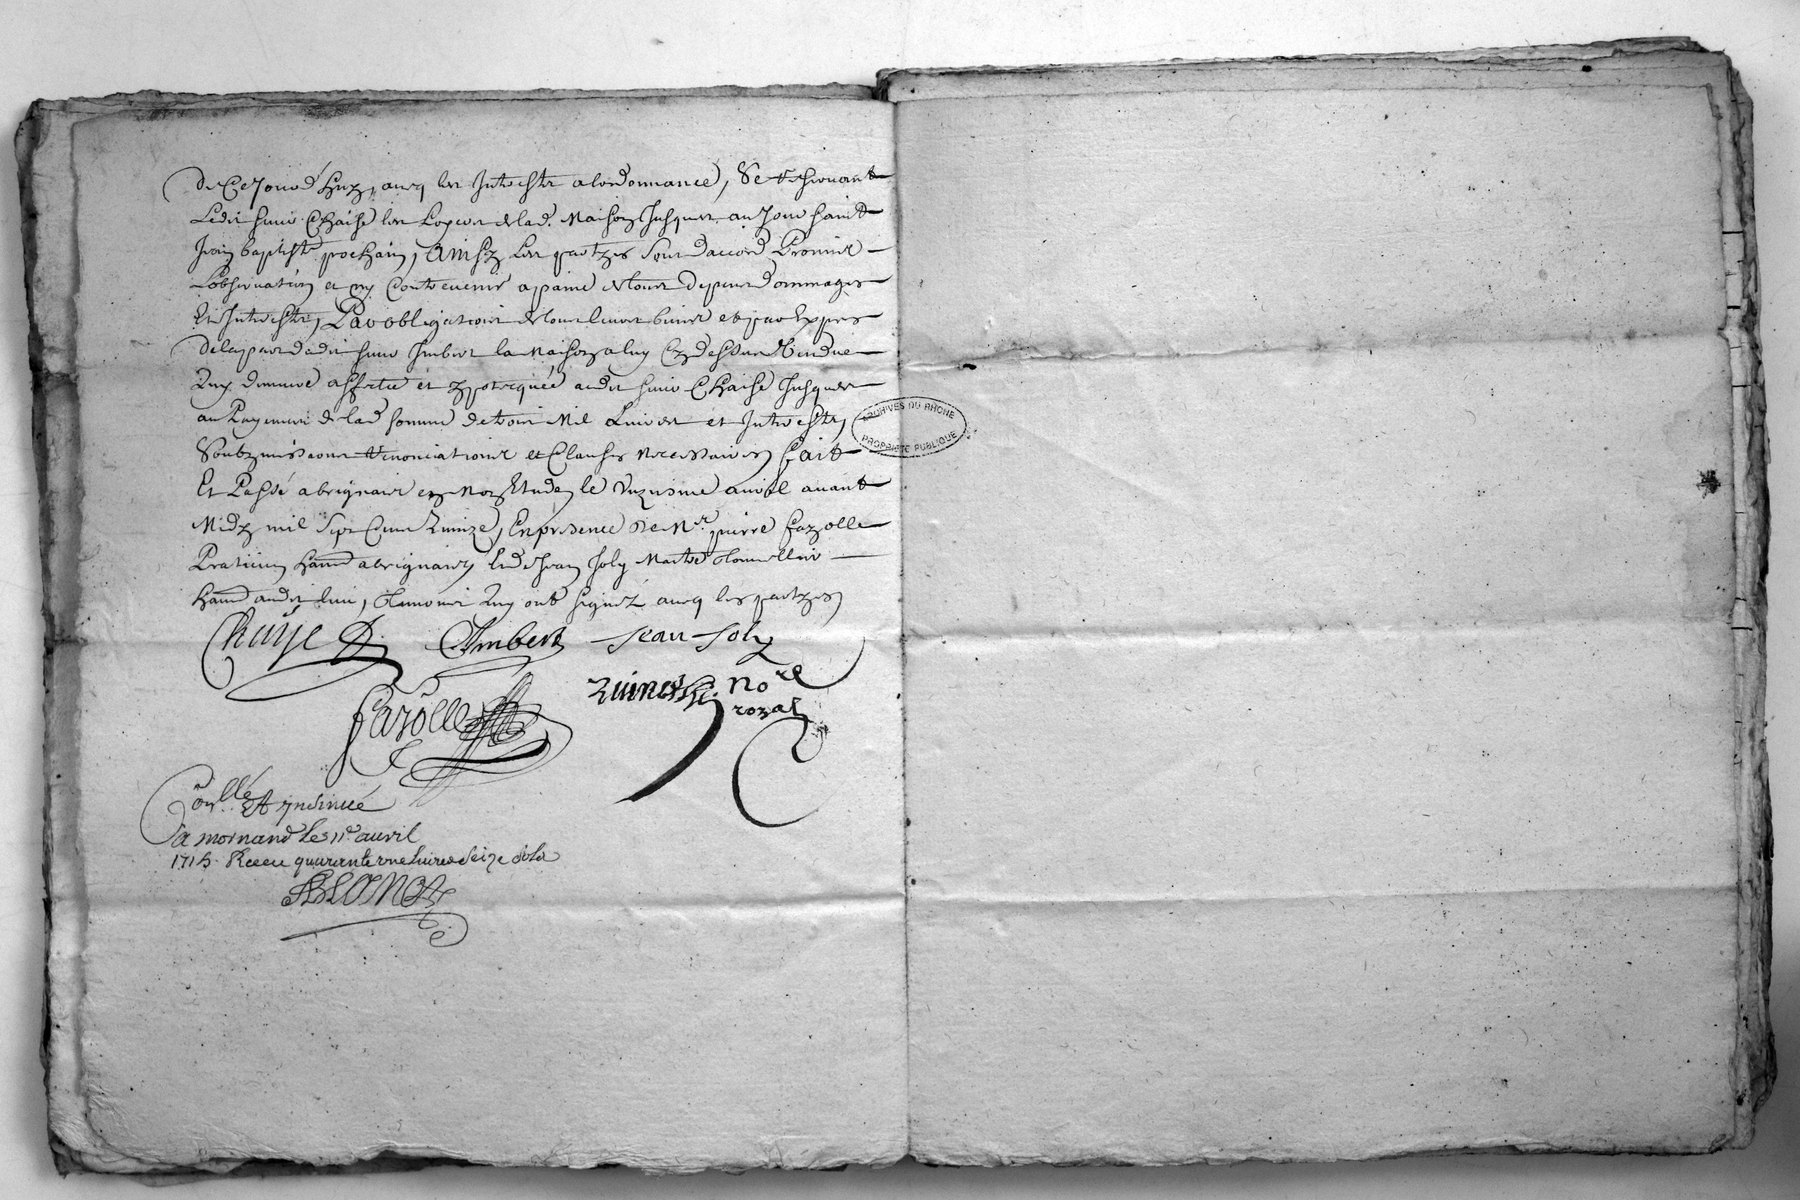 de ce jourd'huy, avec les Intrestz a lordonnance, Se reservant
Ledit sieur Chaise les Loyers de lad. Maison Jusques au Jour saint
Jean baptiste prochain, Ainsy les partyes sont d'accord Promis
Lobservation et ny Contrevenir a paine de tous depens dommages
Et Intrestz, Par obligation de tous leurs biens et par Exprès
de la part dudit sieur Imbert la Maison a luy Cy dessus Vendue
quy demeure affectee et ypotequée audit sieur Chaise Jusques
au Payement de lad somme de trois Mil Livres et Intrestz,
Soubzmissions Renonciations et Clauses Necessaires, fait
Et Passé a brignais en Nos Etude, le unzieme avril avant
Midy mil sept Cent quinze, En presence de Mr. pierre fazolle
Praticien habt a brignais, Et de Jean Joly Maitre Tonnellier
habt audit lieu, temoins quy ont signez avec les partyes
Chaise Imbert Jean Joly
fazolle No.re
royal
Con.llé Et Insinué
a mornand le 11e. avril
1715. Receu quarante une livres seize sols
ARCHIVES DU RHONE
PROPRIETE PUBLIQUE